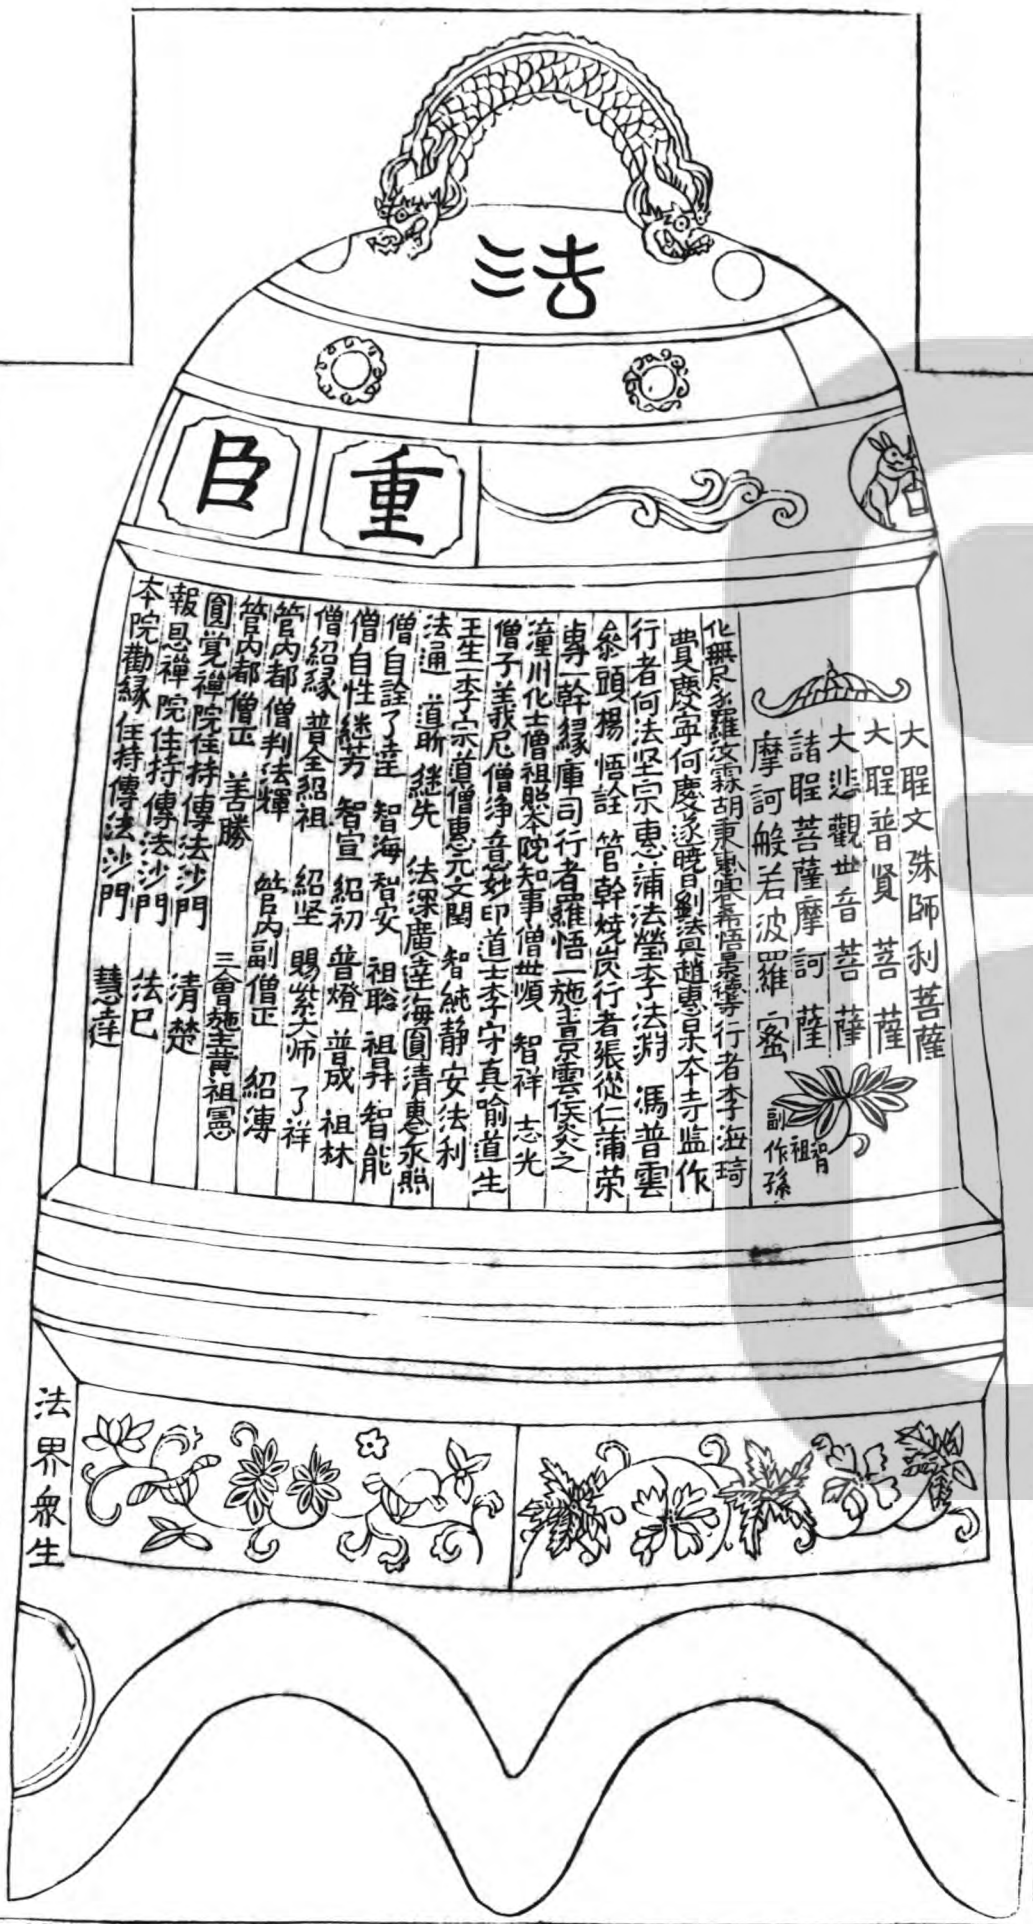 法
重
臣
大聖文殊師利菩薩
大聖普賢菩薩
大悲觀世音菩薩
諸聖菩薩摩訶薩
摩訶般若波羅蜜
副作孫祖
行者李海琦
費慶寧何慶遂曉昌劉法興趙惠景本寺監作
行者何法堅宗惠蒲法瑩李法渕 馮普雲
叅頭楊悟詮 管幹燒炭行者張從仁蒲荣
專一幹緣庫司行者羅悟一施主景雲侯炎之
潼川化士僧祖照本院知事僧世順 智祥 志光
僧子義我尼僧淨音惠妙印道士李守真喻道生
王生李宗道僧惠元文閏 智純靜安法利
法通 道昕 継先 法深廣達海圓清惠永照
僧自詮了達 智海智安 祖聡 祖昇 智能
僧自性継芳 智宣 紹初 普燈 普成 祖林
僧紹緣 普全紹祖 紹坚 賜紫大师 了祥
管内都僧判法輝 管内副僧正 紹溥
管内都僧正 善勝 三會施主黄祖憲
圓覚禪院住持傳法沙門 清楚
報恩禪院住持傳法沙門 法巳
夲院勸緣住持傳法沙門 慧達
法界衆生